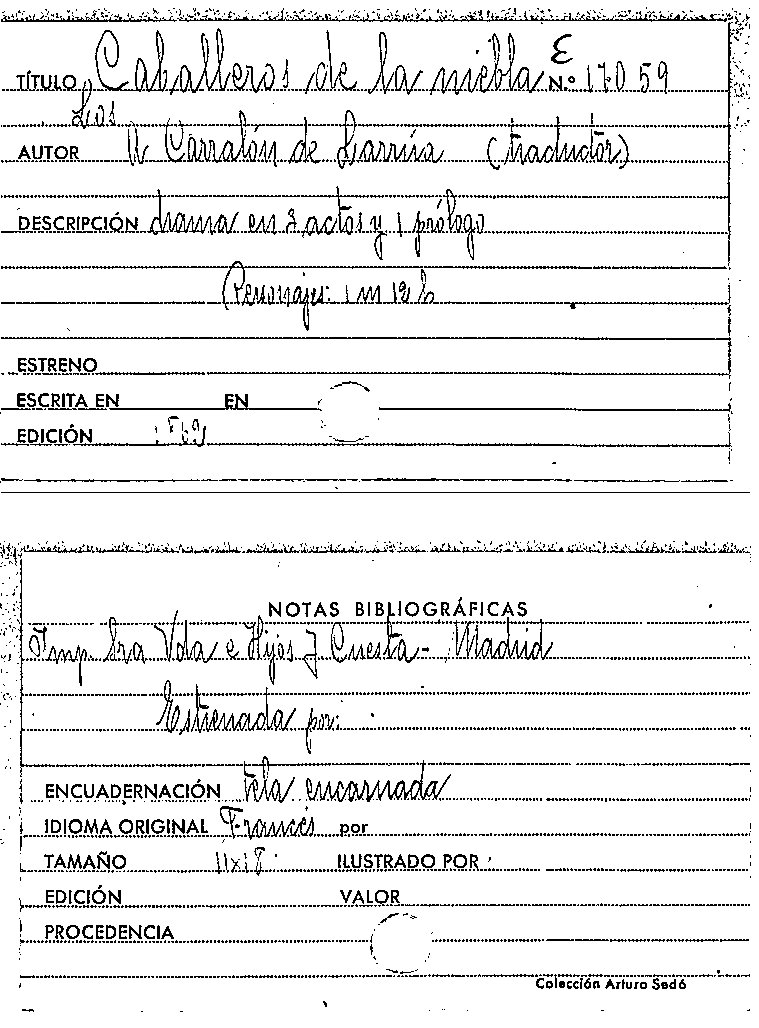 TÍTULO Caballeros de la niebla E N.º 17059
Los
AUTOR A Carralón de Larrúa (traductor)
DESCRIPCIÓN drama en 3 actos y 1 prólogo
Personajes: 1 m 12 h
ESTRENO
ESCRITA EN EN
EDICIÓN
NOTAS BIBLIOGRÁFICAS
Imp. Sra Vda e Hijos J Cuesta - Madrid
Estrenada por:
ENCUADERNACIÓN tela encarnada
IDIOMA ORIGINAL Francés por
TAMAÑO 11x18 ILUSTRADO POR
EDICIÓN VALOR
PROCEDENCIA
Colección Arturo Sedó